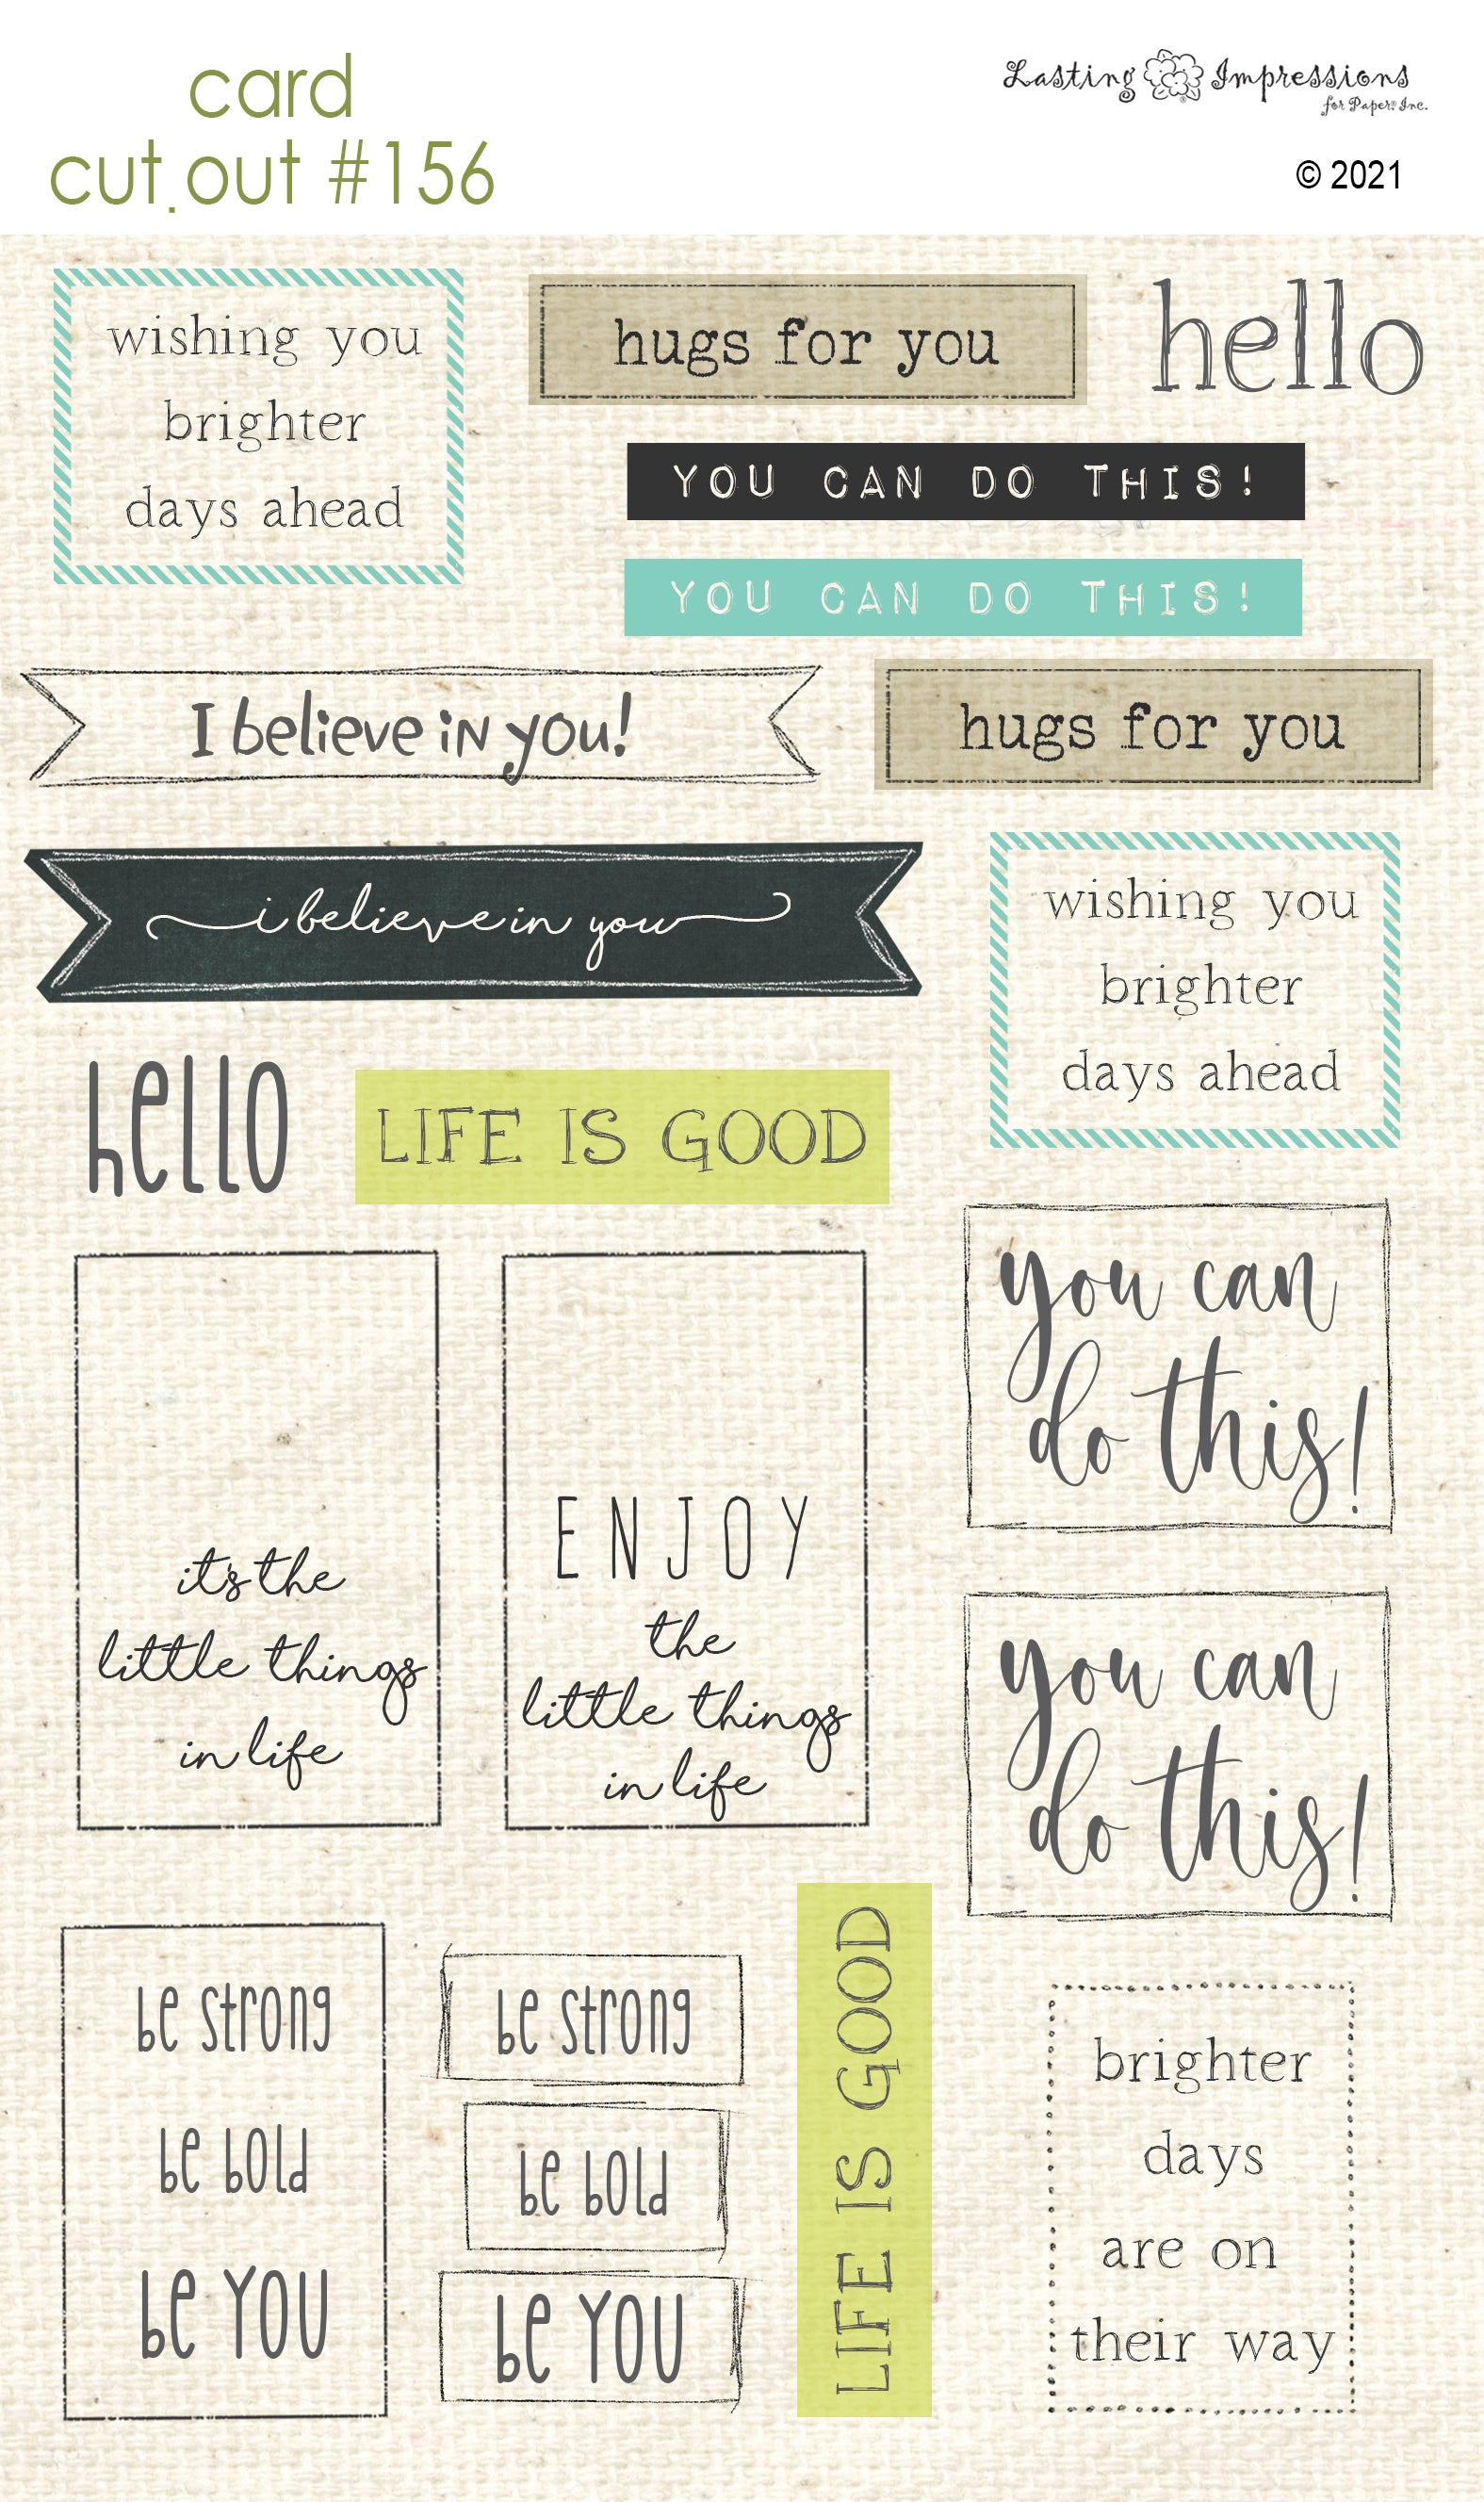 card
cut.out #156
Lasting Impressions
for Paper, Inc.
© 2021
wishing you
brighter
days ahead
hugs for you
hello
YOU CAN DO THIS!
YOU CAN DO THIS!
I believe in you!
hugs for you
i believe in you
wishing you
brighter
days ahead
hello
LIFE IS GOOD
you can
do this!
it's the
little things
in life
ENJOY
the
little things
in life
you can
do this!
be strong
be bold
be YOU
be strong
be bold
be YOU
LIFE IS GOOD
brighter
days
are on
their way